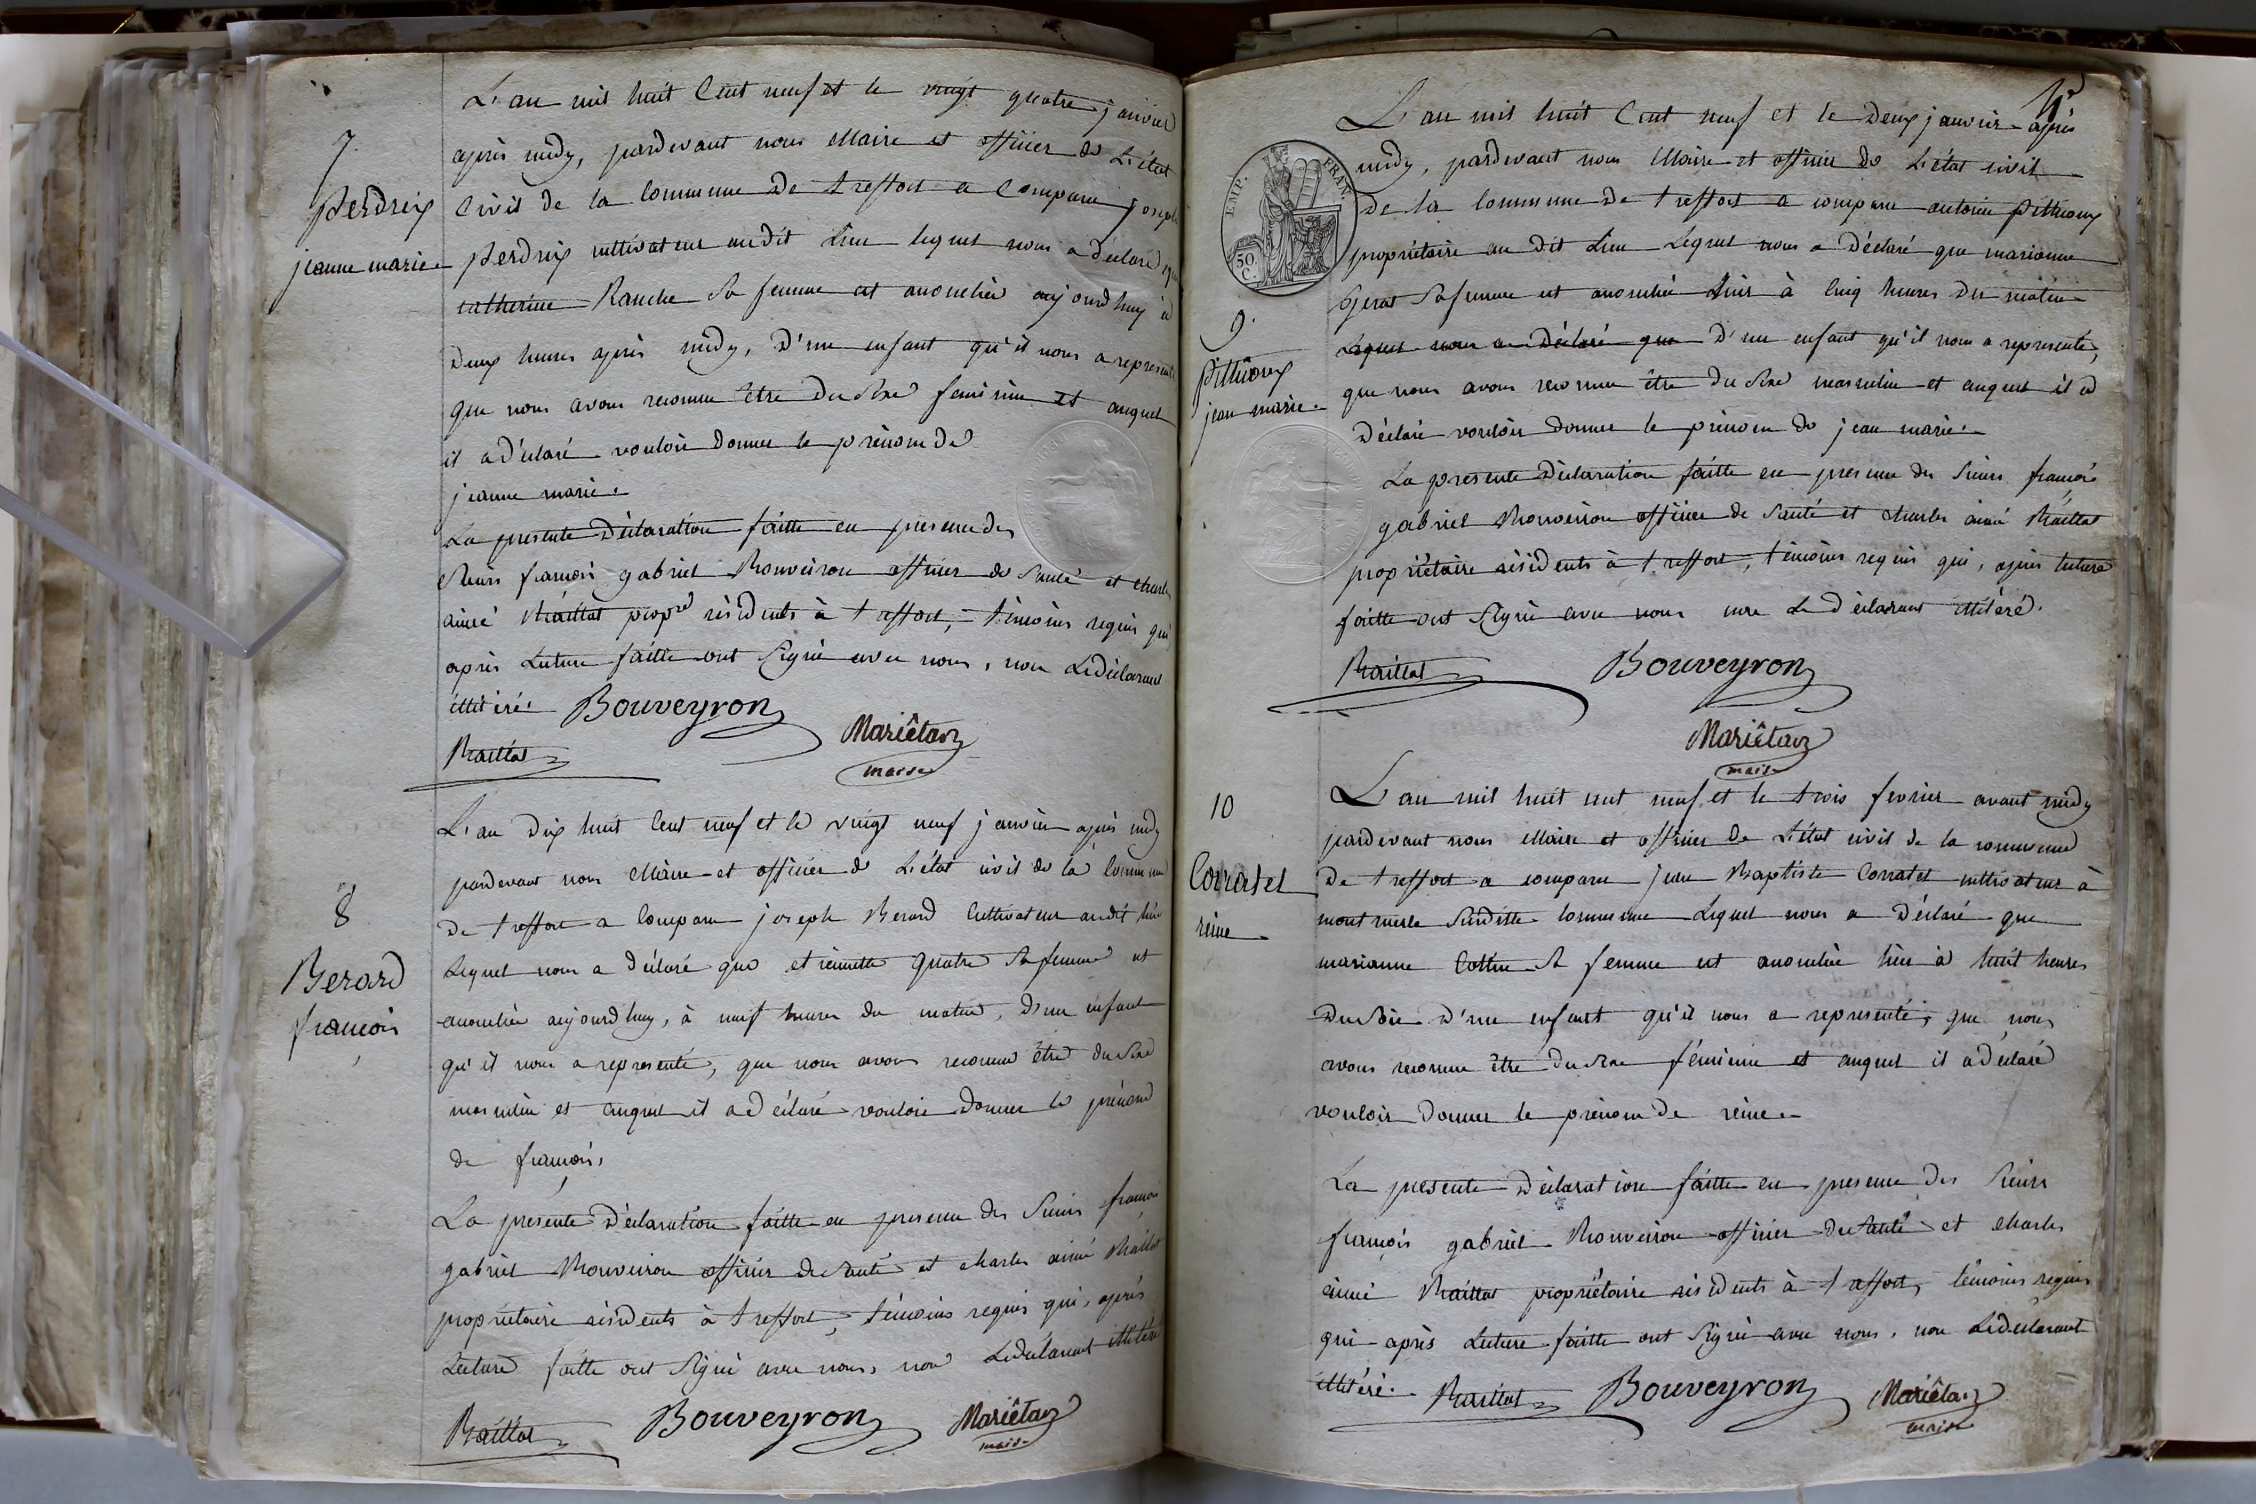 L'an mil huit Cent neuf et le vingt quatre janvier
après midy, pardevant nous Maire et officier de L'état
Civil de la Commune de treffort a Comparu joseph
perdrix cultivateur audit Lieu lequel nous a déclaré que
catherine Ranche Sa femme est accouchée aujourdhuy à
Deux heures après midy, D'un enfant qu'il nous a representé
que nous avons reconnu être du Sexe feminin et auquel
il a déclaré vouloir donner le prénom de
jeanne marie.
La presente Déclaration faitte en presence des
Sieurs françois gabriel Bouveiron officier de Santé et charles
aimé Baillat propre résidents à treffort, témoins requis qui
après Lecture faitte ont Signé avec nous, non Le déclarant
illitéré.
Bouveyron
Mariêtan
maire
Baillat
7.
perdrix
jeanne marie.
L'an Dix huit Cent neuf et le vingt neuf janvier après midy
pardevant nous Maire et officier de L'état civil de la Commune
de treffort a Comparu joseph Berard Cultivateur audit lieu
Lequel nous a déclaré que etiennette quatre Sa femme est
accouchée aujourdhuy, à neuf heures du matin, D'un enfant
qu'il nous a representé, que nous avons reconnu être du Sexe
masculin et auquel il a déclaré vouloir donner le prénom
de françois,
La présente Déclaration faitte en presence des Sieurs françois
gabriel Bouveiron officier de Santé et charles aimé Baillat
propriétaire résidents à treffort, témoins requis qui, après
Lecture faitte ont Signé avec nous, non Le déclarant illitéré
Baillat
Bouveyron
Mariêtan
maire
8
Berard
françois
L'an mil huit Cent neuf et le Deux janvier après
midy, pardevant nous Maire et officier de L'état civil
De la Commune De treffort a comparu antoine pitthioux
propriétaire au dit Lieu Lequel nous a Déclaré que marianne
Sa femme est accouchée hier à Cinq heures du matin
Lequel nous a Déclaré que D'un enfant qu'il nous a representé,
que nous avons reconnu être du Sexe masculin et auquel il a
Déclaré vouloir donner le prénom de jean marie.
La presente Déclaration faitte en presence des Sieurs françois
gabriel Bouveiron officier de Santé et charles aimé Baillat
propriétaire résidents à treffort, témoins requis qui, après lecture
faitte ont Signé avec nous non Le déclarant illitéré.
Baillat
Bouveyron
Mariêtan
maire
EMP. FRAN.
50 C.
9.
pitthioux
jean marie.
L'an mil huit cent neuf et le trois fevrier avant midy
pardevant nous Maire et officier De L'état civil de la commune
De treffort a comparu jean Baptiste Corratet cultivateur à
montmerle Susditte Commune Lequel nous a Déclaré que
marianne Cottin Sa femme est accouchée hier à huit heures
Du Soir D'un enfant qu'il nous a representé, que nous
avons reconnu être du Sexe féminin et auquel il a Déclaré
vouloir Donner le prénom de reine.
La presente Déclaration faitte en presence des Sieurs
françois gabriel Bouveiron officier de Santé et charles
aimé Baillat propriétaire résidents à treffort, témoins requis
qui après Lecture faitte ont Signé avec nous, non Le déclarant
illitéré.
Baillat
Bouveyron
Mariêtan
maire
10
Corratet
reine